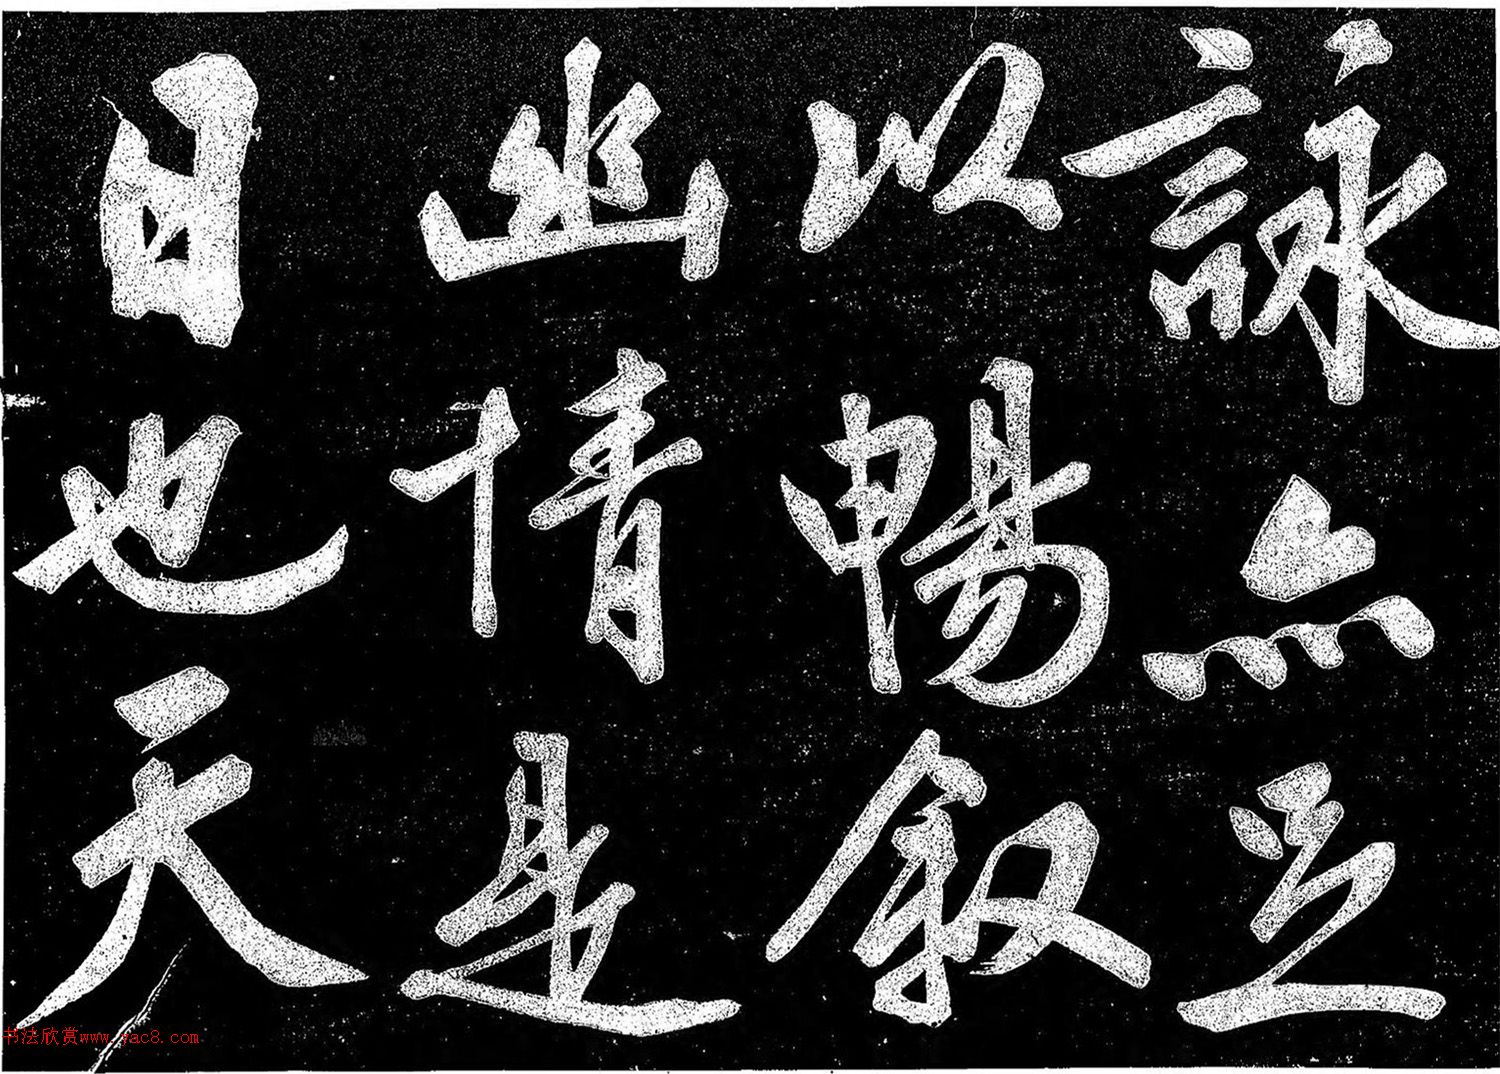 詠亦足
以暢叙
幽情是
日也天
书法欣赏www.yac8.com